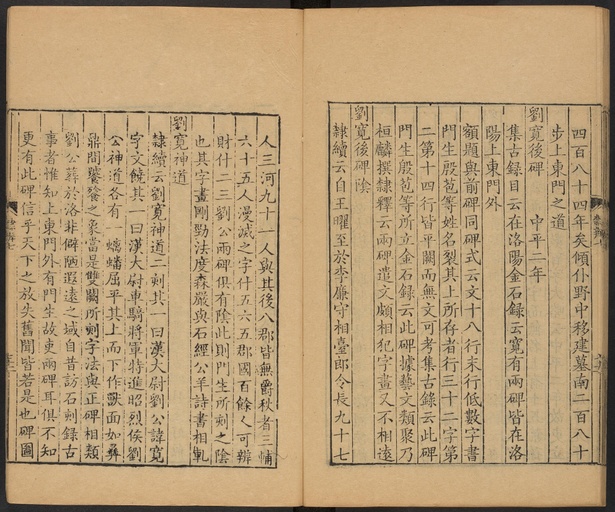 四百八十四年矣傾仆野中移建墓南二百八十
步上東門之道
劉寛後碑　中平二年
集古録目云在洛陽金石録云寛有兩碑皆在洛
陽上東門外
額題與前碑同碑式云文十八行末行低數字書
門生殷苞等姓名裂其上所存者行三十二字第
二第十四行皆平闕而無文可考集古録云此碑
門生殷苞等所立金石録云此碑據藝文類聚乃
桓麟撰隸釋云兩碑遣文頗相犯字畫又不相遠
劉寛後碑陰
隸續云自王曜至於李廉守相臺郎令長九十七
人三河九十一人與其後八郡皆無爵秩者三輔
六十五人漫滅之字什五六五郡國百餘人可辨
財什二三劉公兩碑俱有陰此則門生所刻之陰
也其字畫剛勁法度森嚴與石經公羊詩書相軋
劉寛神道
隸續云劉寛神道二刻其一曰漢大尉劉公諱寛
字文饒其一曰漢大尉車騎將軍特進昭烈侯劉
公神道各有一螭蟠屈乎其上而下作獸面如彝
鼎間饕餮之象當是雙闕所刻字法與正碑相類
劉公葬於洛非僻陋遐遠之域自昔訪石刻録古
事者惟知上東門外有門生故吏兩碑耳俱不知
更有此碑信乎天下之放失舊聞皆若是也碑圖